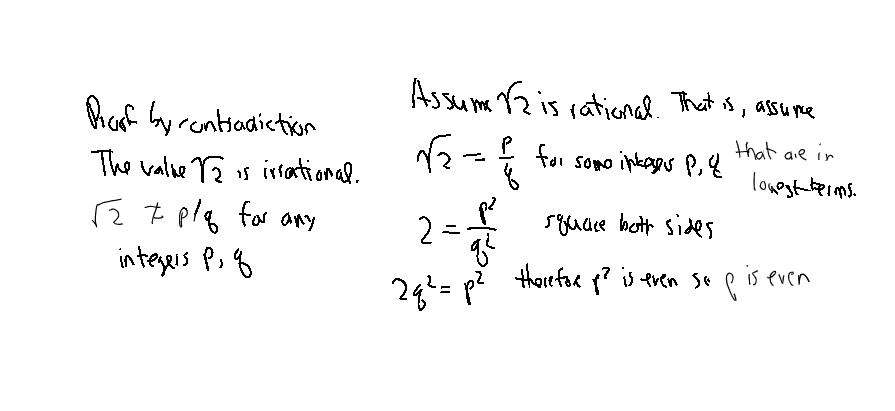 Proof by contradiction
The value √2 is irrational.
√2 ≠ p/q for any
integers p, q
Assume √2 is rational. That is, assume
√2 = p/q for some integers p, q that are in
lowest terms.
2 = p²/q² square both sides
2q² = p² therefore p² is even so p is even